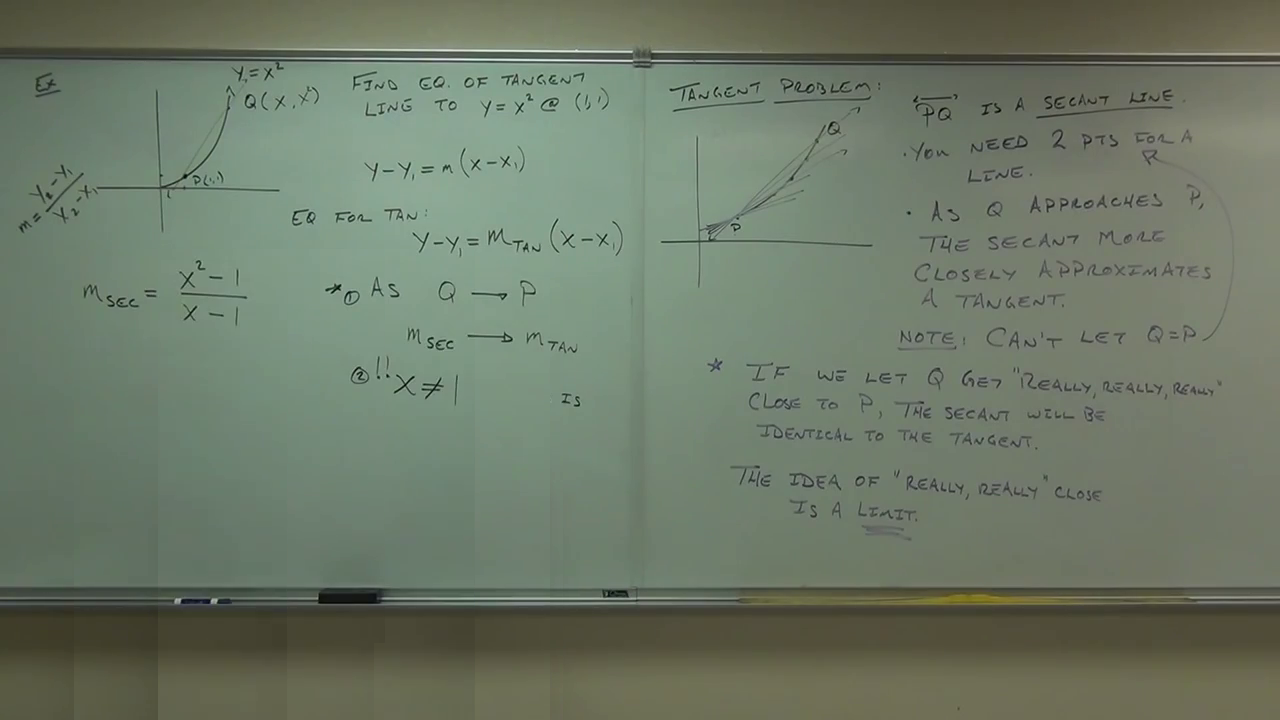 Ex
y = x²
Q(x, x²)
P(1,1)
m = y₂ - y₁ / x₂ - x₁
m_SEC = x² - 1 / x - 1
FIND EQ. OF TANGENT
LINE TO y = x² @ (1,1)
y - y₁ = m(x - x₁)
EQ FOR TAN:
y - y₁ = m_TAN (x - x₁)
* ① AS Q → P
m_SEC → m_TAN
② !! x ≠ 1
IS
TANGENT PROBLEM:
Q
P
"PQ" IS A SECANT LINE.
· YOU NEED 2 PTS FOR A
LINE.
· AS Q APPROACHES P,
THE SECANT MORE
CLOSELY APPROXIMATES
A TANGENT.
NOTE: CAN'T LET Q=P
* IF WE LET Q GET "REALLY, REALLY, REALLY"
CLOSE TO P, THE SECANT WILL BE
IDENTICAL TO THE TANGENT.
THE IDEA OF "REALLY, REALLY" CLOSE
IS A LIMIT.